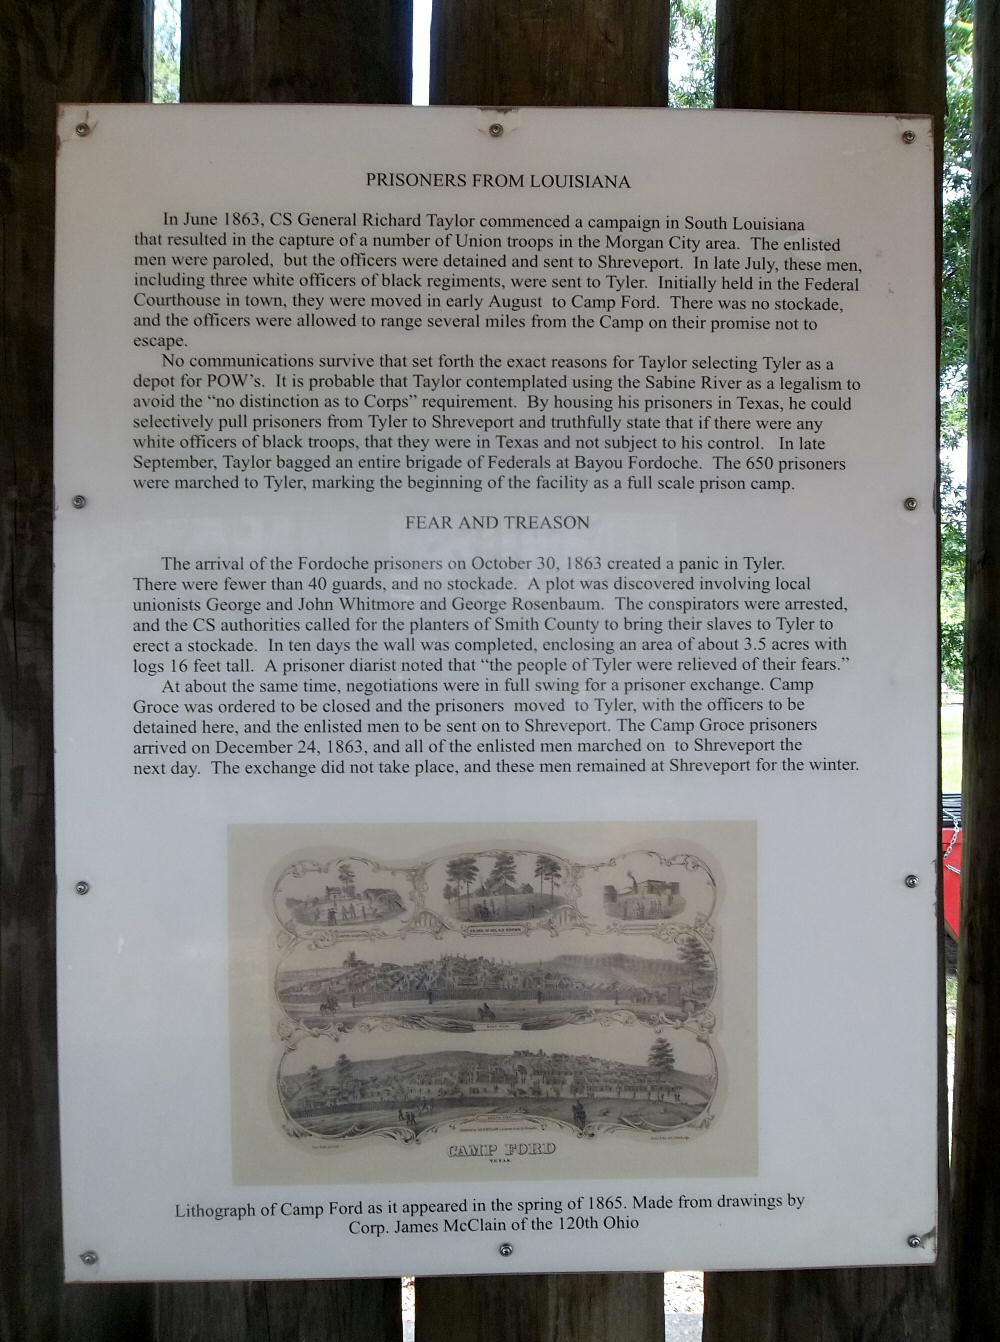 PRISONERS FROM LOUISIANA
In June 1863, CS General Richard Taylor commenced a campaign in South Louisiana
that resulted in the capture of a number of Union troops in the Morgan City area. The enlisted
men were paroled, but the officers were detained and sent to Shreveport. In late July, these men,
including three white officers of black regiments, were sent to Tyler. Initially held in the Federal
Courthouse in town, they were moved in early August to Camp Ford. There was no stockade,
and the officers were allowed to range several miles from the Camp on their promise not to
escape.
No communications survive that set forth the exact reasons for Taylor selecting Tyler as a
depot for POW's. It is probable that Taylor contemplated using the Sabine River as a legalism to
avoid the "no distinction as to Corps" requirement. By housing his prisoners in Texas, he could
selectively pull prisoners from Tyler to Shreveport and truthfully state that if there were any
white officers of black troops, that they were in Texas and not subject to his control. In late
September, Taylor bagged an entire brigade of Federals at Bayou Fordoche. The 650 prisoners
were marched to Tyler, marking the beginning of the facility as a full scale prison camp.
FEAR AND TREASON
The arrival of the Fordoche prisoners on October 30, 1863 created a panic in Tyler.
There were fewer than 40 guards, and no stockade. A plot was discovered involving local
unionists George and John Whitmore and George Rosenbaum. The conspirators were arrested,
and the CS authorities called for the planters of Smith County to bring their slaves to Tyler to
erect a stockade. In ten days the wall was completed, enclosing an area of about 3.5 acres with
logs 16 feet tall. A prisoner diarist noted that "the people of Tyler were relieved of their fears."
At about the same time, negotiations were in full swing for a prisoner exchange. Camp
Groce was ordered to be closed and the prisoners moved to Tyler, with the officers to be
detained here, and the enlisted men to be sent on to Shreveport. The Camp Groce prisoners
arrived on December 24, 1863, and all of the enlisted men marched on to Shreveport the
next day. The exchange did not take place, and these men remained at Shreveport for the winter.
CAMP FORD
TEXAS
Lithograph of Camp Ford as it appeared in the spring of 1865. Made from drawings by
Corp. James McClain of the 120th Ohio